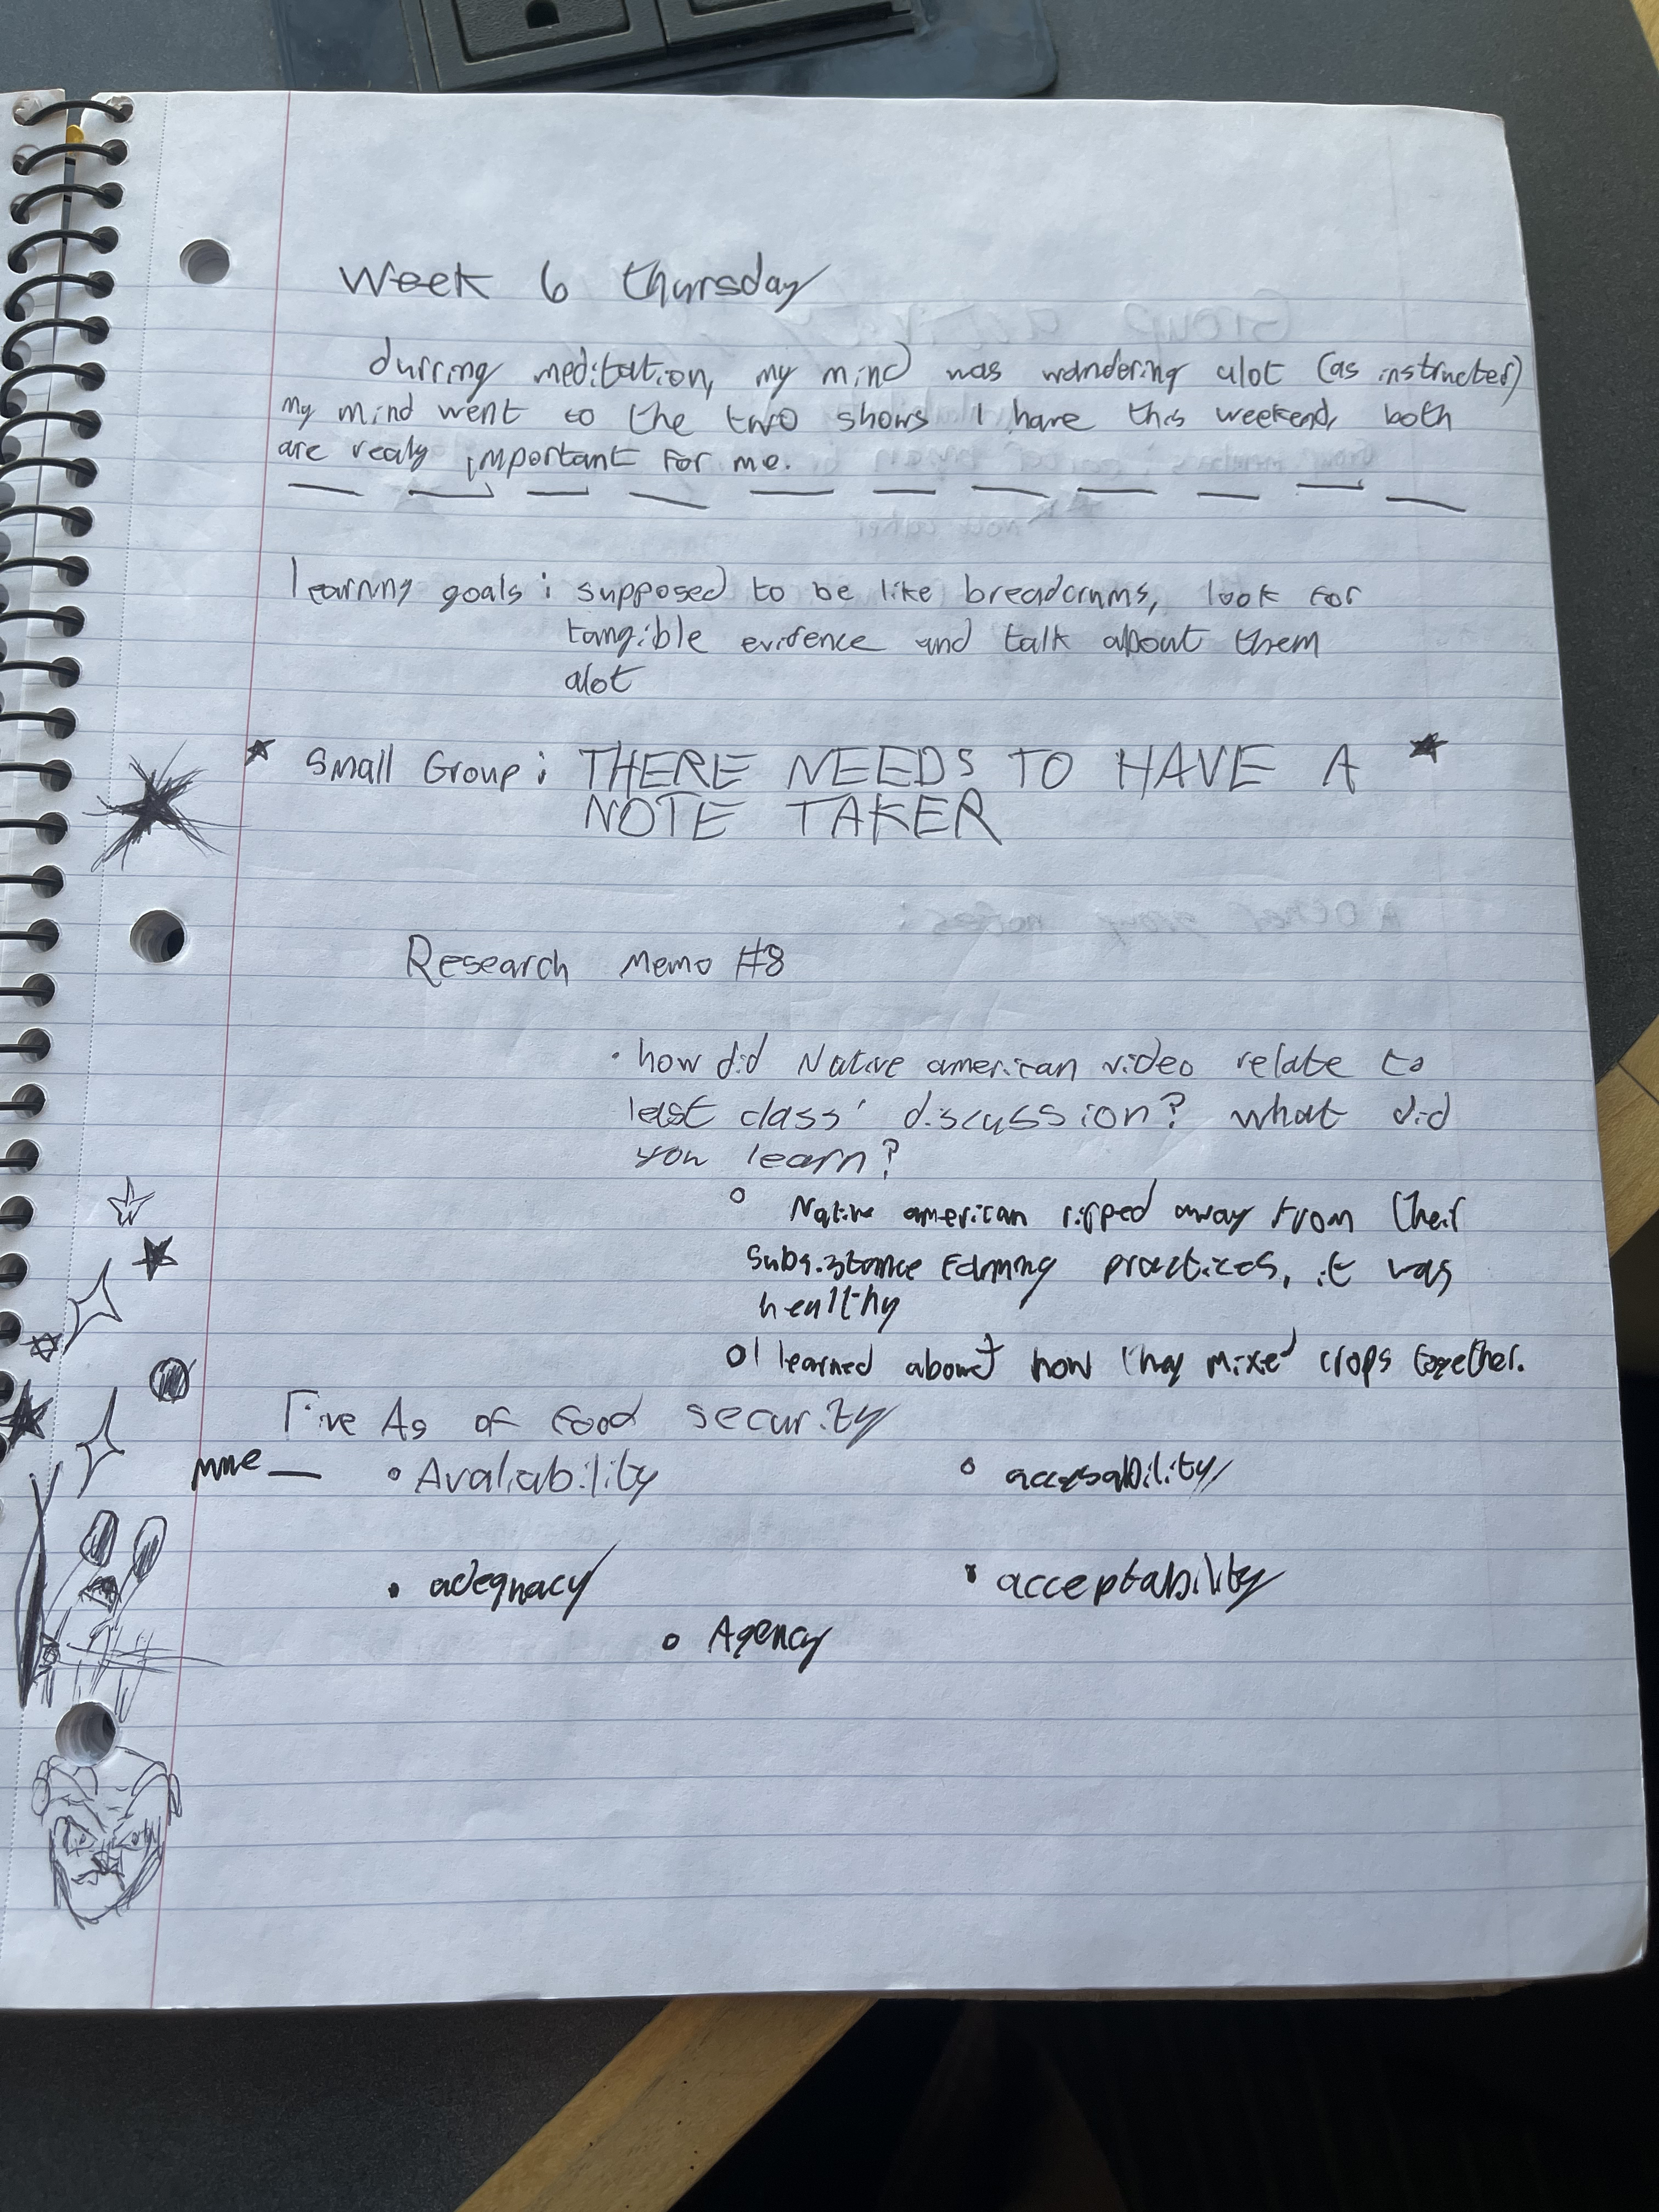 Week 6 thursday
durring meditation, my mind was wandering alot (as instructed)
my mind went to the two shows I have this weekend, both
are realy important for me.
learning goals : supposed to be like breadcrums, look for
tangible evidence and talk about them
alot
Small Group : THERE NEEDS TO HAVE A
NOTE TAKER
Research Memo #8
• how did Native american video relate to
last class' discussion? what did
you learn?
○ Native american ripped away from their
subsistance farming practices, it was
healthy
○ I learned about how they mixed crops together.
Five As of food security
mme — • Avaliability ○ accesability
• adequacy • acceptability
○ Agency